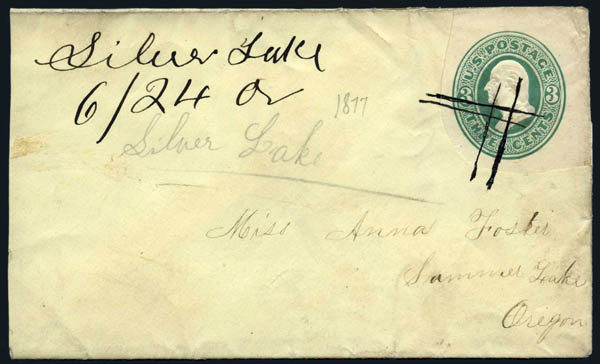 Silver Lake
6/24 Or
1877
Silver Lake
U.S. POSTAGE
3 3
THREE CENTS
Miss Anna Foster
Summer Lake
Oregon